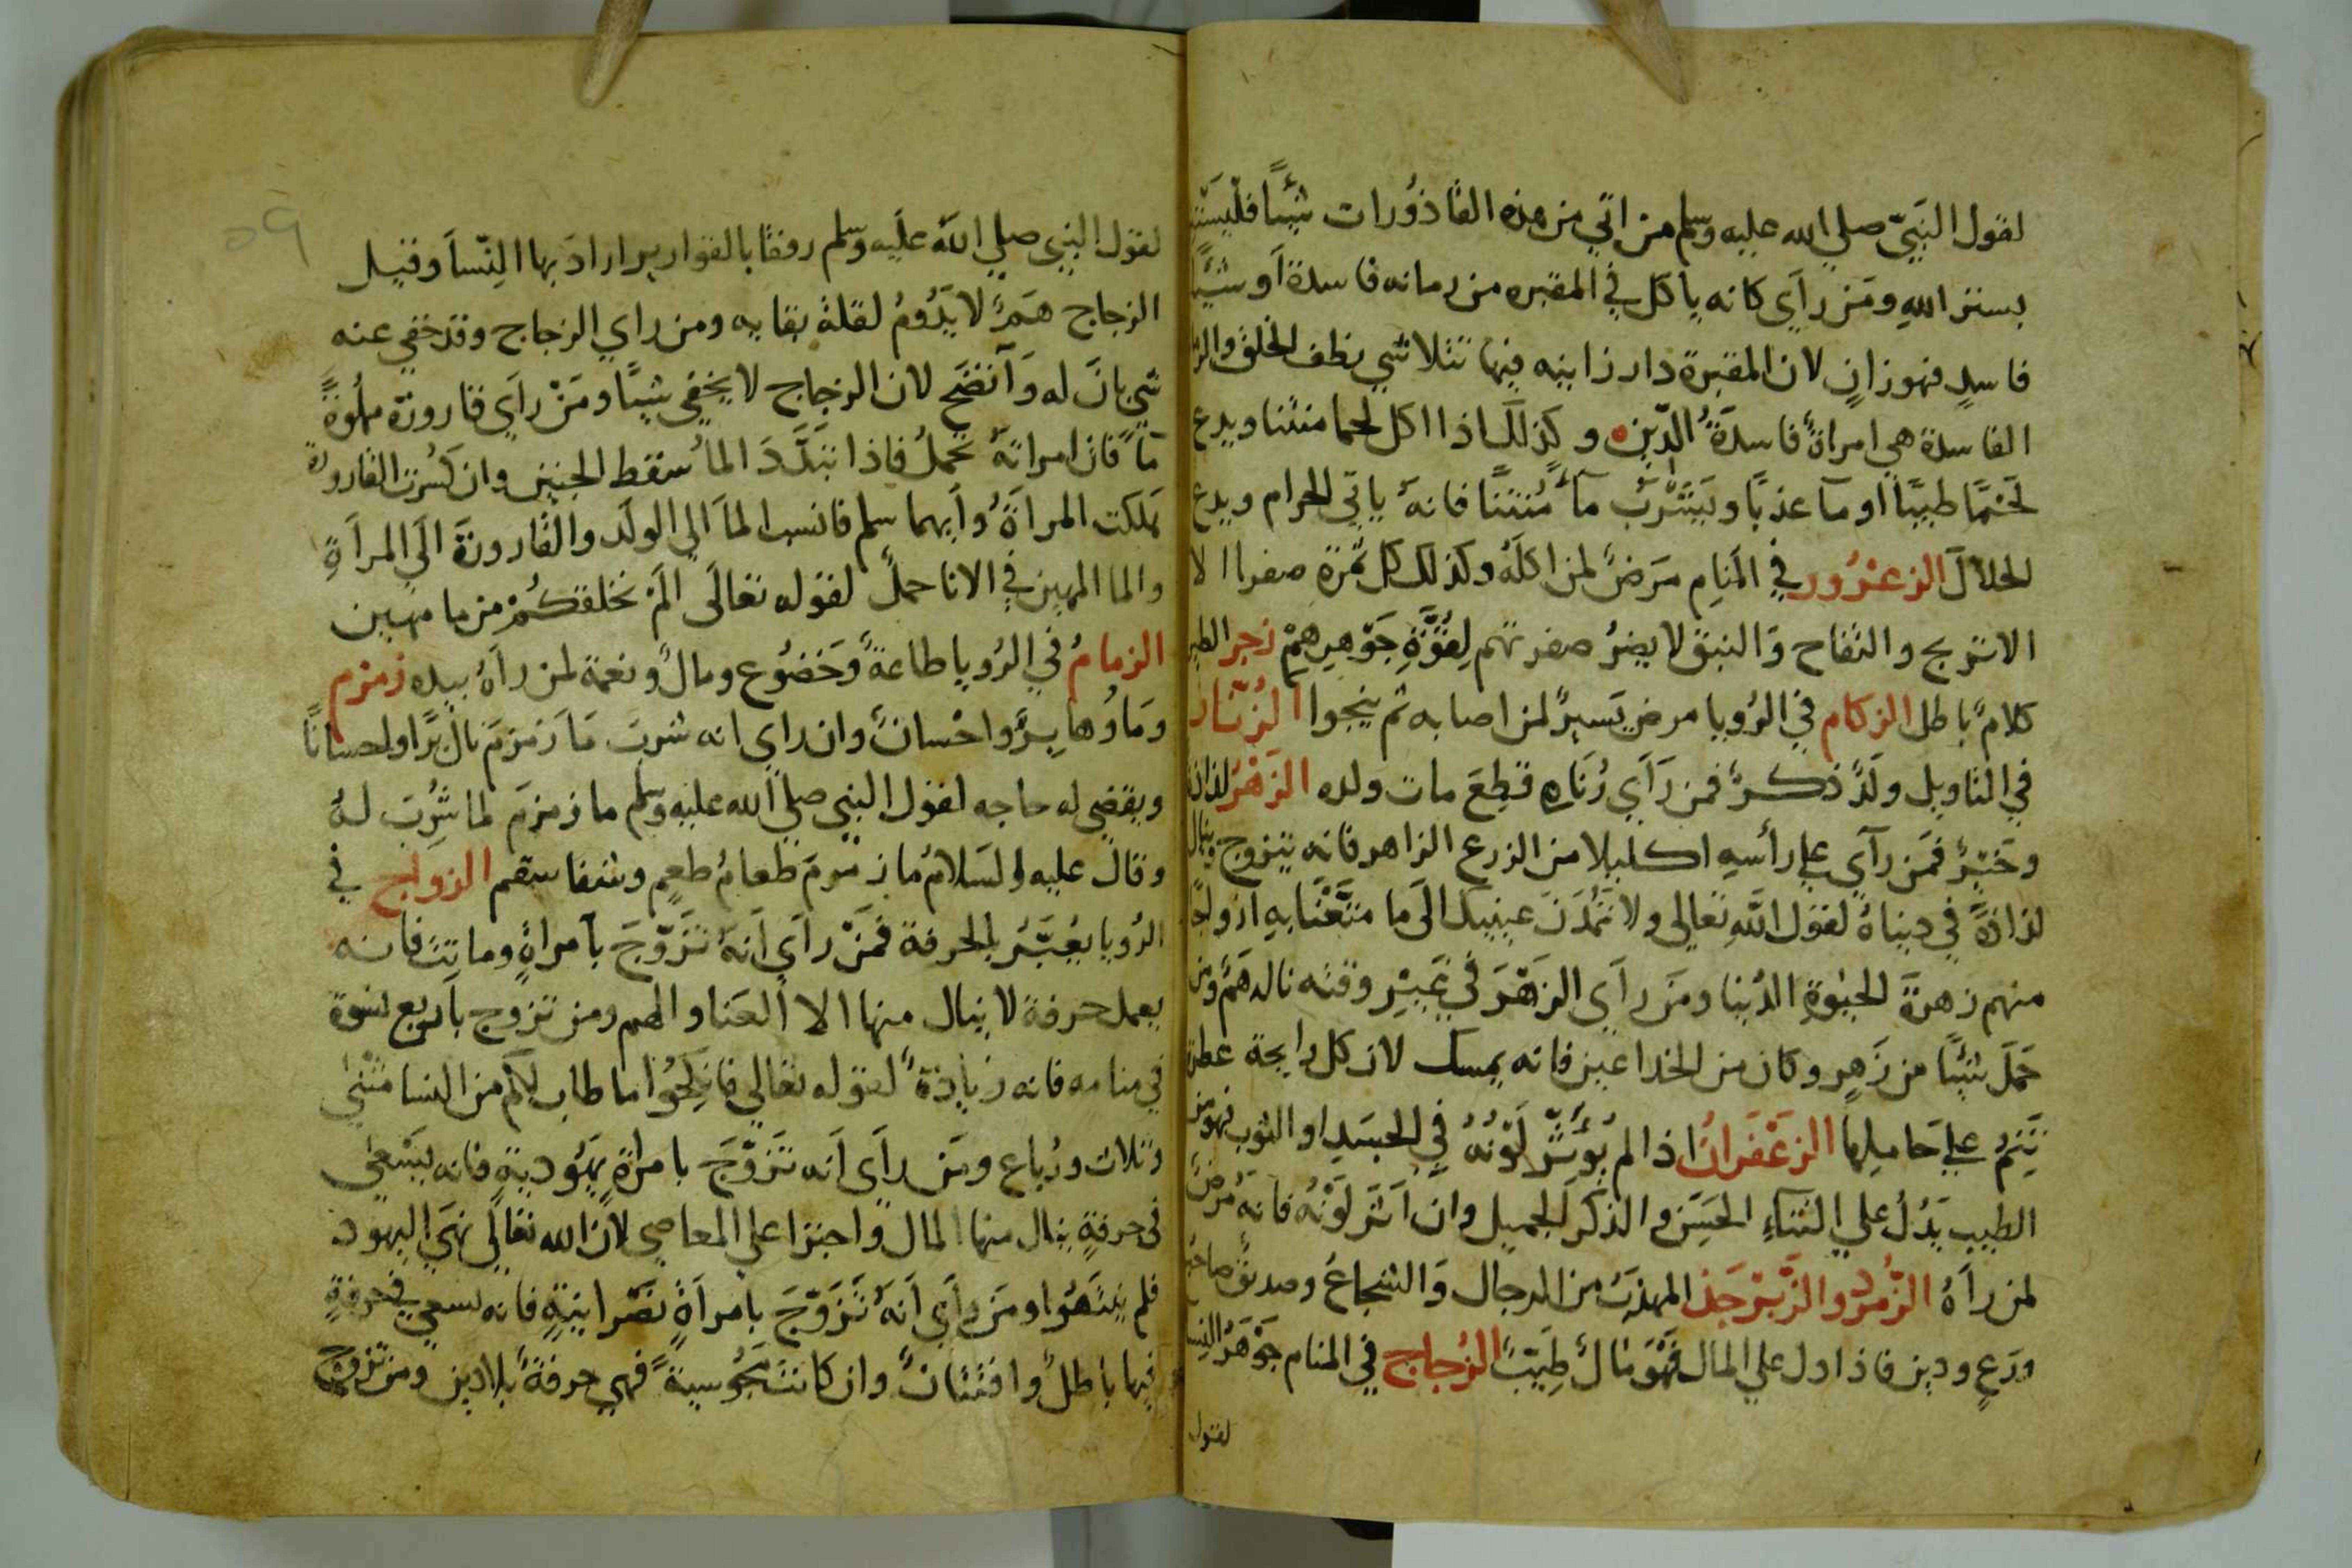 لقول النَبيّ صلي الله عليه وسلم من اتي من هذه القاذُورات شيًا فليَستتر
بستر اللهِ ومَن رآي كانه ياكل في المقبره من رمانه فاسدة اَو شيًا
فاسدٍ فهو زانٍ لان المقبرة دار زانيه فيها تتلاشي نطف الخلق
الفاسدة هي امراةٌ فاسدَةُ الدّين وكذلك اذا اكل لحما منتنا ويدع
لَحْمًا طيبًا او مآ عذبًا ويَشْرَب مآءً مُنتنًا فانهُ ياتي الحرام ويدع
الحلالَ الزعْرُور في المَنام مَرَضٌ لمن اكلَهُ وكذلك كل ثَمرَةٍ صفرا الا
الاترج والتفاح وَالنبق لا يضرُ صفرتهم لِقُوَّةِ جَوْهرِهِمْ زجر الطير
كلامٌ باطل الزكام في الرُويا مرض يَسيرٌ لمن اصابه ثم ينجوا الزُنّار
في التاويل ولَدٌ ذكرٌ فمن رَآَي زُنّاره قطِعَ مات ولده الزَهْر لذاذة
وخَيْرٌ فمَن رآي علي رأسهِ اكليلا من الزرع الزاهر فانه يتزوج وينال
لذاذةً في دنياهُ لقول اللَّهِ تعالي ولا تَمُدَنَ عينيك الَي ما متَّعْنَا بهِ ازواجًا
منهم زهرَةَ الحيوةِ الدُنيا ومَن رآَي الزَهْرَ في غَيْرِ وقته نالهُ هَمٌ ومن
حَمَلَ شيًا من زَهرٍ وكان من الخداعين فانه يمسك لان كل رايحة عطره
تَنِمُ علي حَامِلها الزعْفَرانُ اذا لم يُوَثِّرْ لَوْنُهُ في الجَسَدِ او الثوب فهو من
الطيب يَدُلُ علي الثناءِ الحَسَن والذكر الجميل وان اَثّرَ لَوْنُهُ فانهُ مَرَضٌ
لمن رآهُ الزُمرُد والزَّبَرْجَد المهذبُ من الرجال وَالشجاعُ وصديقٌ صاحبُ
ورَعٍ ودين فاذا دل علي المال فَهْوَ مَالٌ طِيّبٌ الزُجاج في المنام جَوْهَرُ النِسا
لقول
لقول النبي صلي اللهُ عليَه وسلم رفقًا بالقوارير اراد بها النّسآ وقيل
الزجاج هَمٌ لا يَدُومُ لقلة بقايه ومن راي الزجاج وقد خفي عنه
شي بانَ له وَآتضَح لان الزجاج لا يخفي شيًا ومَنْ رآي قارورة مملُوةً
مآ فان امراتهُ تحمل فاذا تبَدَّدَ المآ سقط الجنين وان كُسرت القارورة
هلكت المراَةُ وَاَيهما سلم فانسب المآ الي الولد والقارورَةَ الَي المراَةِ
والما المهين في الانا حملٌ لقوله تعالَي الَمْ نخلقكُمْ من ما مهين
الزمامُ في الرُويا طاعةٌ وَخضُوع ومالٌ ونعمة لمن رآهُ بيده زمزم
ومَاوُها بِرٌّ واحْسانٌ وان راي انه شربَ مَا زمزمَ نال بّرًا واحسانًا
ويقضي له حاجه لقول النبي صلي الله عليه وسلم ما زمزمَ لما شُرِبَ لهُ
وقال عليه السَلامُ ما زمزمَ طعامُ طعمٍ وشفا سقم الزواج في
الرُويا يعُبَّرُ بالحرفة فَمَنْ رآَي اَنهُ تزَوّجَ بآمراةٍ وماتت فانه
يعمل حرفة لا ينال منها الا العَنا والهم ومن تزوج باربع نسوة
في منامه فانه زيادة لقوله تعالي فانكِحُوا ما طاب لكم من النسا مثْني
وثلاث ورُباع ومَن رآَي اَنه تَزَوّجَ بامراةٍ يهُوديةٍ فانه يَسْعي
في حرفةٍ ينال منها المال واجترا علي المعاصي لان الله تعالَي نهَي اليهود
فلم يَنتَهُوا ومَن رآَي اَنهُ تَزَوّجَ بامراَةٍ نصْرانيةٍ فانه يسعي في حرفةٍ
فيها باطلٌ وافتتانٌ وان كانت مجُوسيةً فهي حرفةٌ بلا دين ومن تزوج